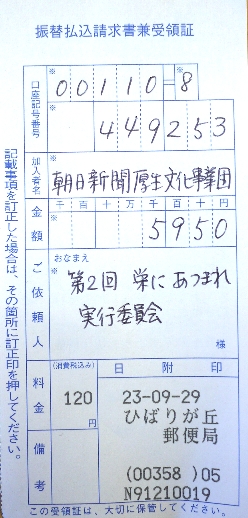 振替払込請求書兼受領証
口座記号番号
※ 00110-8
※ 449253
加入者名
※ 朝日新聞厚生文化事業団
金額
千百十万千百十円
※ 5950
ご依頼人
おなまえ
※ 第2回 栄にあつまれ
実行委員会
様
料金
(消費税込み)
120
円
日附印
23-09-29
ひばりが丘
郵便局
(00358)05
N91210019
備考
この受領証は、大切に保管してください。
記載事項を訂正した場合は、その箇所に訂正印を押してください。